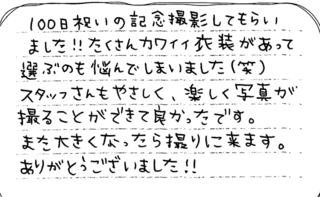 100日祝いの記念撮影してもらい
ました!!たくさんカワイイ衣装があって
選ぶのも悩んでしまいました(笑)
スタッフさんもやさしく、楽しく写真が
撮ることができて良かったです。
また大きくなったら撮りに来ます。
ありがとうございました!!